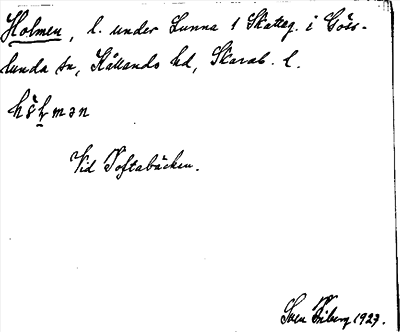 Holmen, l. under Lunna 1 Skatteg. i Gös-
lunda sn, Kållands hd, Skarab. l.
hå̀l̥mən
Vid Toftabäcken.
Sven Friberg 1927.